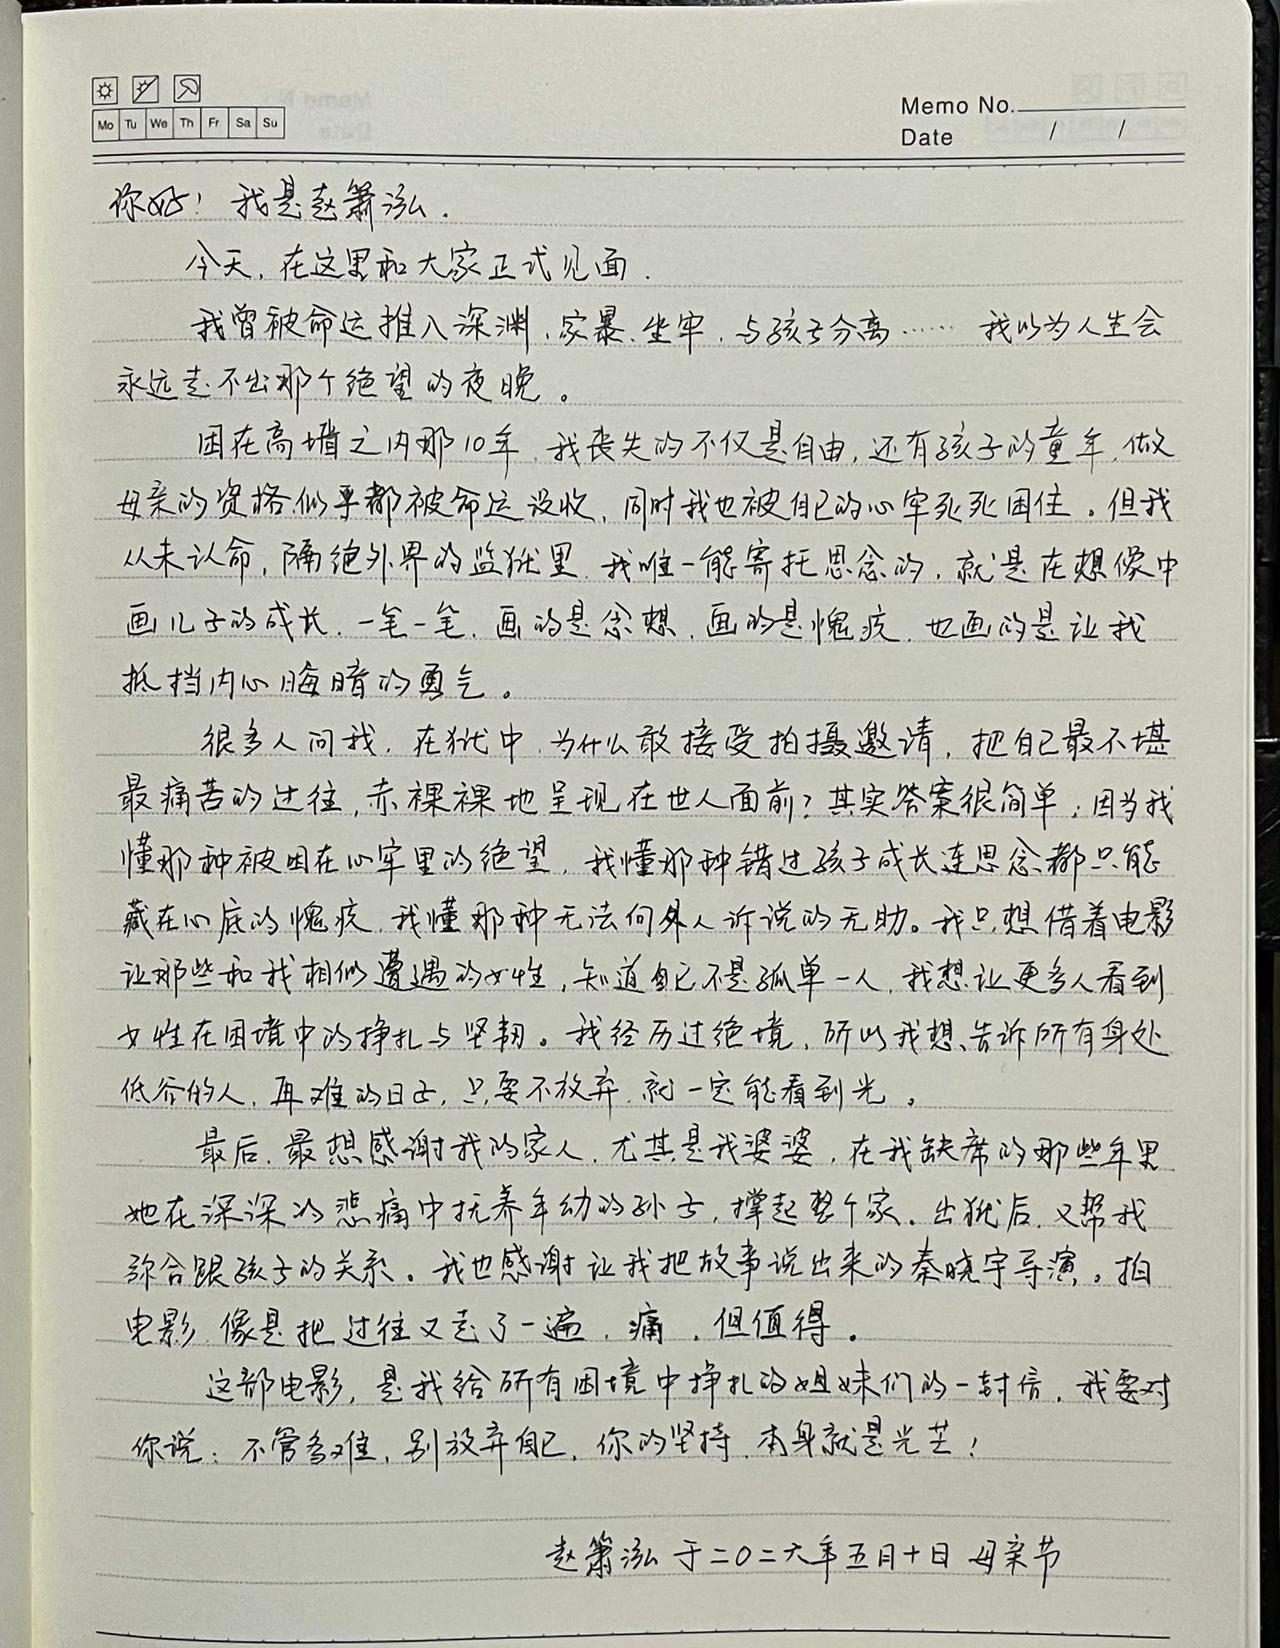 Mo Tu We Th Fr Sa Su
Memo No.
Date / /
你好！我是赵箫泓.
今天,在这里和大家正式见面.
我曾被命运推入深渊,家暴、坐牢,与孩子分离…… 我以为人生会
永远走不出那个绝望的夜晚。
困在高墙之内那10年,我丧失的不仅是自由,还有孩子的童年,做
母亲的资格似乎都被命运没收,同时我也被自己的心牢死死困住。但我
从未认命,隔绝外界的监狱里,我唯一能寄托思念的,就是在想像中
画儿子的成长.一笔一笔,画的是念想,画的是愧疚,也画的是让我
抵挡内心晦暗的勇气。
很多人问我,在狱中,为什么敢接受拍摄邀请,把自己最不堪
最痛苦的过往,赤裸裸地呈现在世人面前?其实答案很简单:因为我
懂那种被困在心牢里的绝望,我懂那种错过孩子成长连思念都只能
藏在心底的愧疚,我懂那种无法向外人诉说的无助。我只想借着电影
让那些和我相似遭遇的女性,知道自己不是孤单一人,我想让更多人看到
女性在困境中的挣扎与坚韧。我经历过绝境,所以我想告诉所有身处
低谷的人,再难的日子,只要不放弃,就一定能看到光。
最后,最想感谢我的家人,尤其是我婆婆,在我缺席的那些年里
她在深深的悲痛中抚养年幼的孙子,撑起整个家.出狱后,又帮我
弥合跟孩子的关系。我也感谢让我把故事说出来的秦晓宇导演。拍
电影,像是把过往又走了一遍,痛,但值得。
这部电影,是我给所有困境中挣扎的姐妹们的一封信,我要对
你说:不管多难,别放弃自己,你的坚持,本身就是光芒!
赵箫泓于二〇二六年五月十日 母亲节